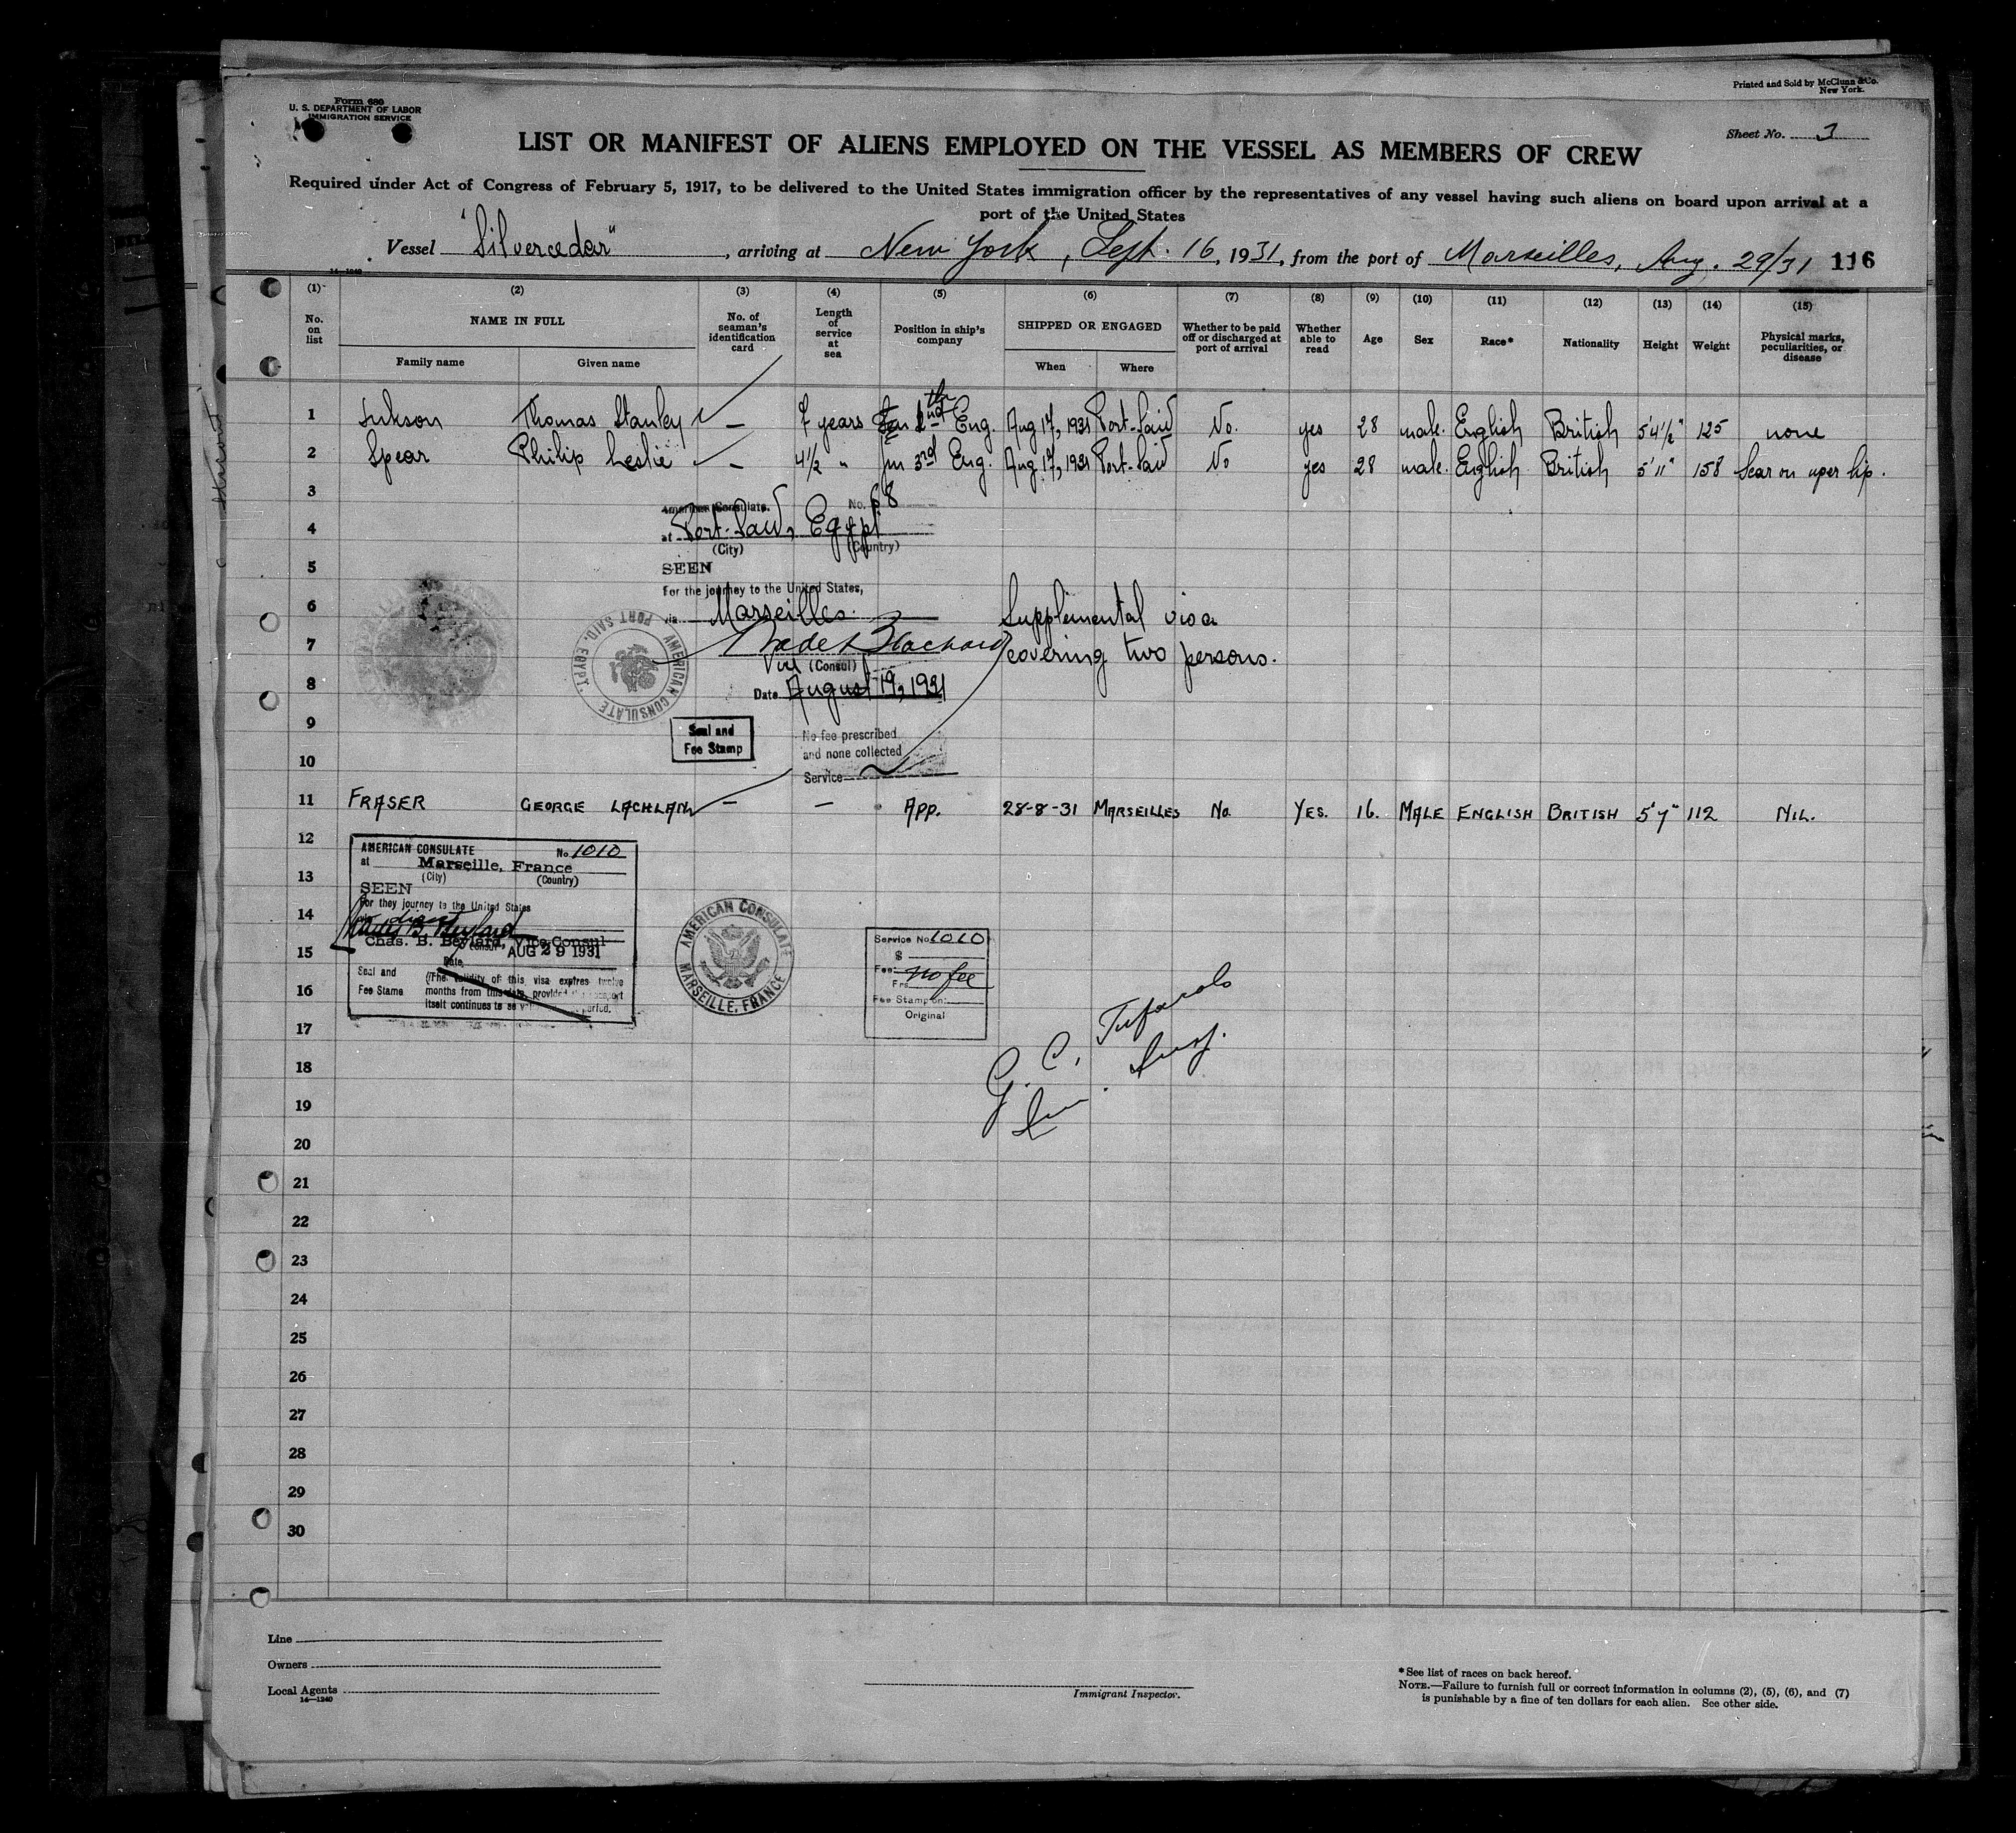 Form 680
U. S. DEPARTMENT OF LABOR
IMMIGRATION SERVICE
Printed and Sold by McClunn & Co.
New York.
Sheet No. 3
LIST OR MANIFEST OF ALIENS EMPLOYED ON THE VESSEL AS MEMBERS OF CREW
Required under Act of Congress of February 5, 1917, to be delivered to the United States immigration officer by the representatives of any vessel having such aliens on board upon arrival at a
port of the United States
Vessel "Silvercedar", arriving at New York, Sept. 16, 1931, from the port of Marseilles, Aug. 29/31 116
14-1240
(1) (2) (3) (4) (5) (6) (7) (8) (9) (10) (11) (12) (13) (14) (15)
No. on list NAME IN FULL No. of seaman's identification card Length of service at sea Position in ship's company SHIPPED OR ENGAGED Whether to be paid off or discharged at port of arrival Whether able to read Age Sex Race* Nationality Height Weight Physical marks, peculiarities, or disease
Family name Given name When Where
1 Thomas Stanley — 7 years Eng. Aug 17, 1931 Port-Said No. yes 28 male. English British 5'4½" 125 none
2 Spear Philip Leslie — 4½ " Jun 3rd Eng. Aug 17, 1931 Port-Said No yes 28 male. English British 5'11" 158 Scar on uper lip.
3
American Consulate. No. 68
4
at Port-Said, Egypt
(City) (Country)
5
SEEN
For the journey to the United States,
6
via Marseilles.
Supplemental visa
7
covering two persons.
(Consul)
8
Date August 19, 1931
AMERICAN CONSULATE PORT SAID, EGYPT
9
Seal and
Fee Stamp
No fee prescribed
and none collected
10
Service
11 FRASER GEORGE LACHLAN — — App. 28-8-31 MARSEILLES No. YES. 16. MALE ENGLISH BRITISH 5'7" 112 NIL.
12
AMERICAN CONSULATE No. 1010
at Marseille, France
13
(City) (Country)
SEEN
For they journey to the United States
14
direct
Chas. B. Beylard, Vice Consul
15
Consul AUG 29 1931
Date
Seal and
Fee Stame
(The validity of this visa expires twelve
16
months from this date, provided the passport
itself continues to be period.
AMERICAN CONSULATE MARSEILLE, FRANCE
Service No. 1010
$
Fee: no fee
Frs
Fee Stamp on:
Original
17
G. C. Tufarolo
18
Imm. Insp.
19
20
21
22
23
24
25
26
27
28
29
30
Line
Owners
Local Agents
14—1240
Immigrant Inspector.
*See list of races on back hereof.
NOTE.—Failure to furnish full or correct information in columns (2), (5), (6), and (7)
is punishable by a fine of ten dollars for each alien. See other side.